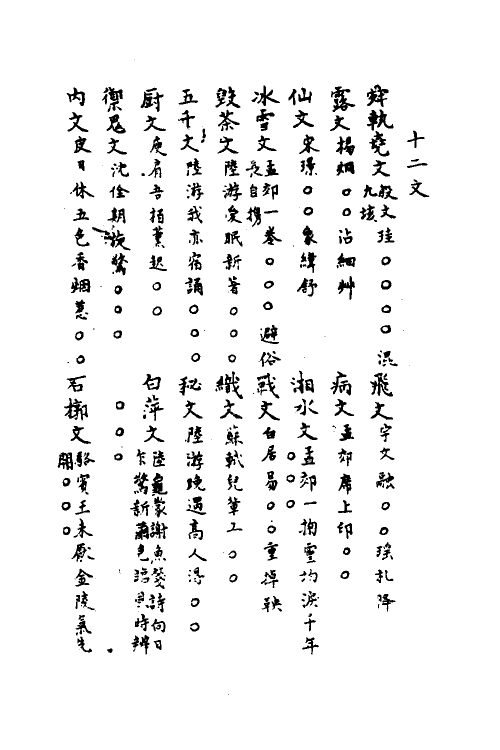 十二文
舜執堯文殷文珪○○○○混九垓
飛文宇文融○○瑶札降
露文楊烱○○沾細艸
病文孟郊席上印○○
仙文宋璟○○象緯舒
湘水文孟郊一掬靈均淚千年○○○
冰雪文孟郊一卷○○○避俗長自携
戰文白居易○○重掉鞅
毀茶文陸游愛眠新著○○○
織文蘇軾兒輩工○○
五千文陸游我亦宿誦○○○
秘文陸游晚遇高人得○○
廚文庾肩吾栢薰起○○
白萍文陸龜蒙謝魚牋詩向日乍驚新繭色臨風時辨○○○
禦鬼文沈佺期族驚○○○
内文皮日休五色香烟惹○○
石槨文駱賓王未厭金陵氣先開○○○